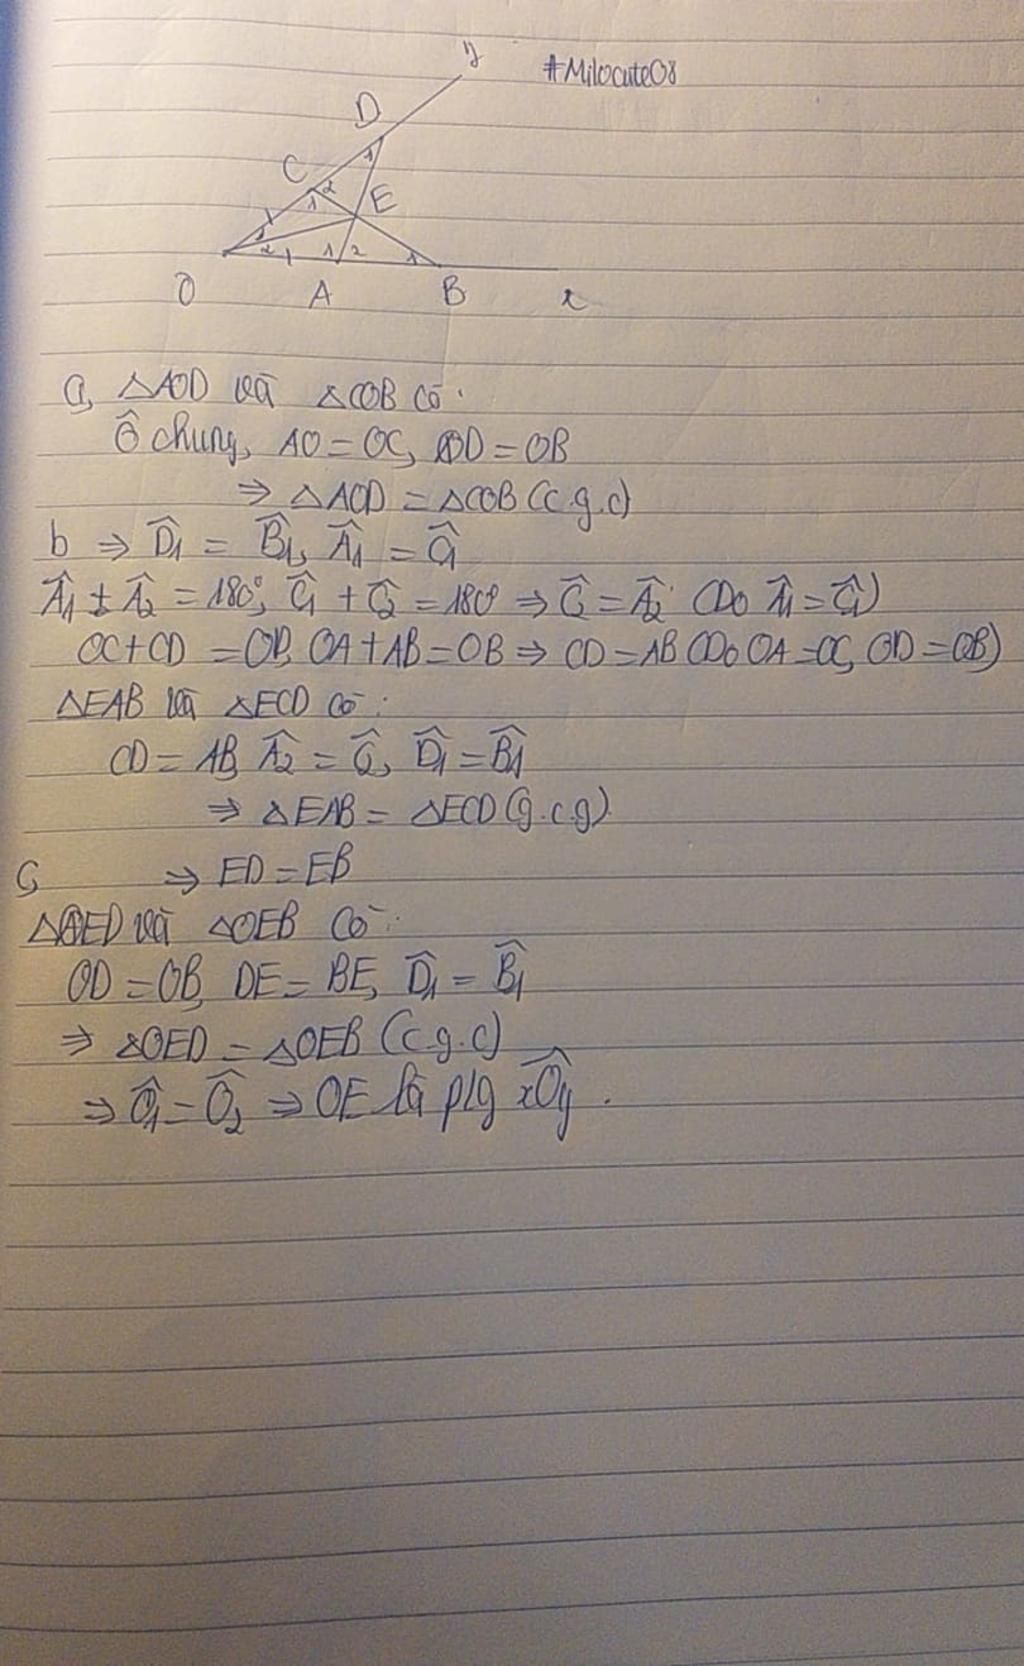 y
#Milocute08
D
C
1
2
1
E
1
2
1
2
1
O
A
B
x
a, △AOD và △COB có:
Ô chung, AO = OC, OD = OB
⇒ △AOD = △COB (c.g.c)
b ⇒ D̂₁ = B̂₁, Â₁ = Ĉ₁
Â₁ + Â₂ = 180°, Ĉ₁ + Ĉ₂ = 180° ⇒ Ĉ₂ = Â₂ (Do Â₁ = Ĉ₁)
OC + CD = OD, OA + AB = OB ⇒ CD = AB (Do OA = OC, OD = OB)
△EAB và △ECD có:
CD = AB, Â₂ = Ĉ₂, D̂₁ = B̂₁
⇒ △EAB = △ECD (g.c.g)
c, ⇒ ED = EB
△OED và △OEB có:
OD = OB, DE = BE, D̂₁ = B̂₁
⇒ △OED = △OEB (c.g.c)
⇒ Ô₁ = Ô₂ ⇒ OE là p/g xÔy.